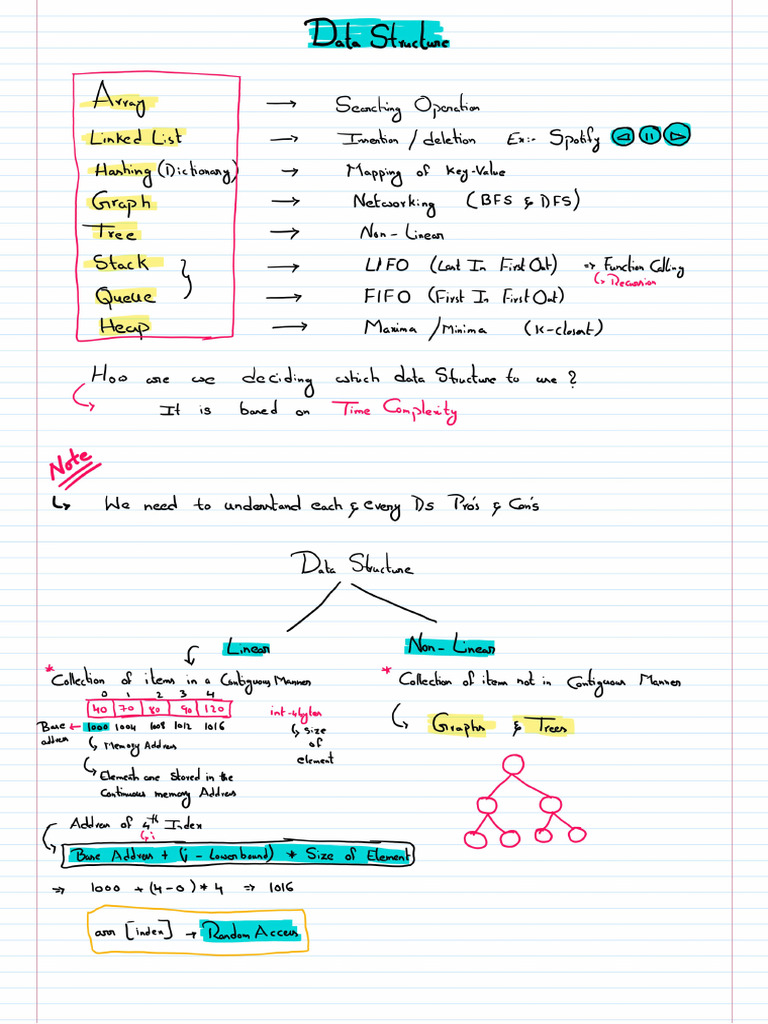 Data Structure
Array → Searching Operation
Linked List → Insertion / deletion Ex:- Spotify
Hashing (Dictionary) → Mapping of Key-Value
Graph → Networking (BFS & DFS)
Tree → Non-Linear
Stack → LIFO (Last In First Out) ⇒ Function Calling
↳ Recursion
Queue → FIFO (First In First Out)
Heap → Maxima / Minima (K-closest)
How are we deciding which data Structure to use ?
↳ It is based on Time Complexity
Note
↳ We need to understand each & every DS Pro's & Con's
Data Structure
Linear
Non-Linear
* Collection of items in a Contiguous Manner
* Collection of items not in Contiguous Manner
0 1 2 3 4
40 70 80 90 120
int-4bytes
↳ size
of
element
Base address ← 1000 1004 1008 1012 1016
↳ Graphs & Trees
↳ Memory Address
↳ Elements are Stored in the
Continuous memory Address
Address of 4th Index
↳ i
Base Address + (i - Lowerbound) * Size of Element
⇒ 1000 + (4-0) * 4 ⇒ 1016
arr [index] → Random Access